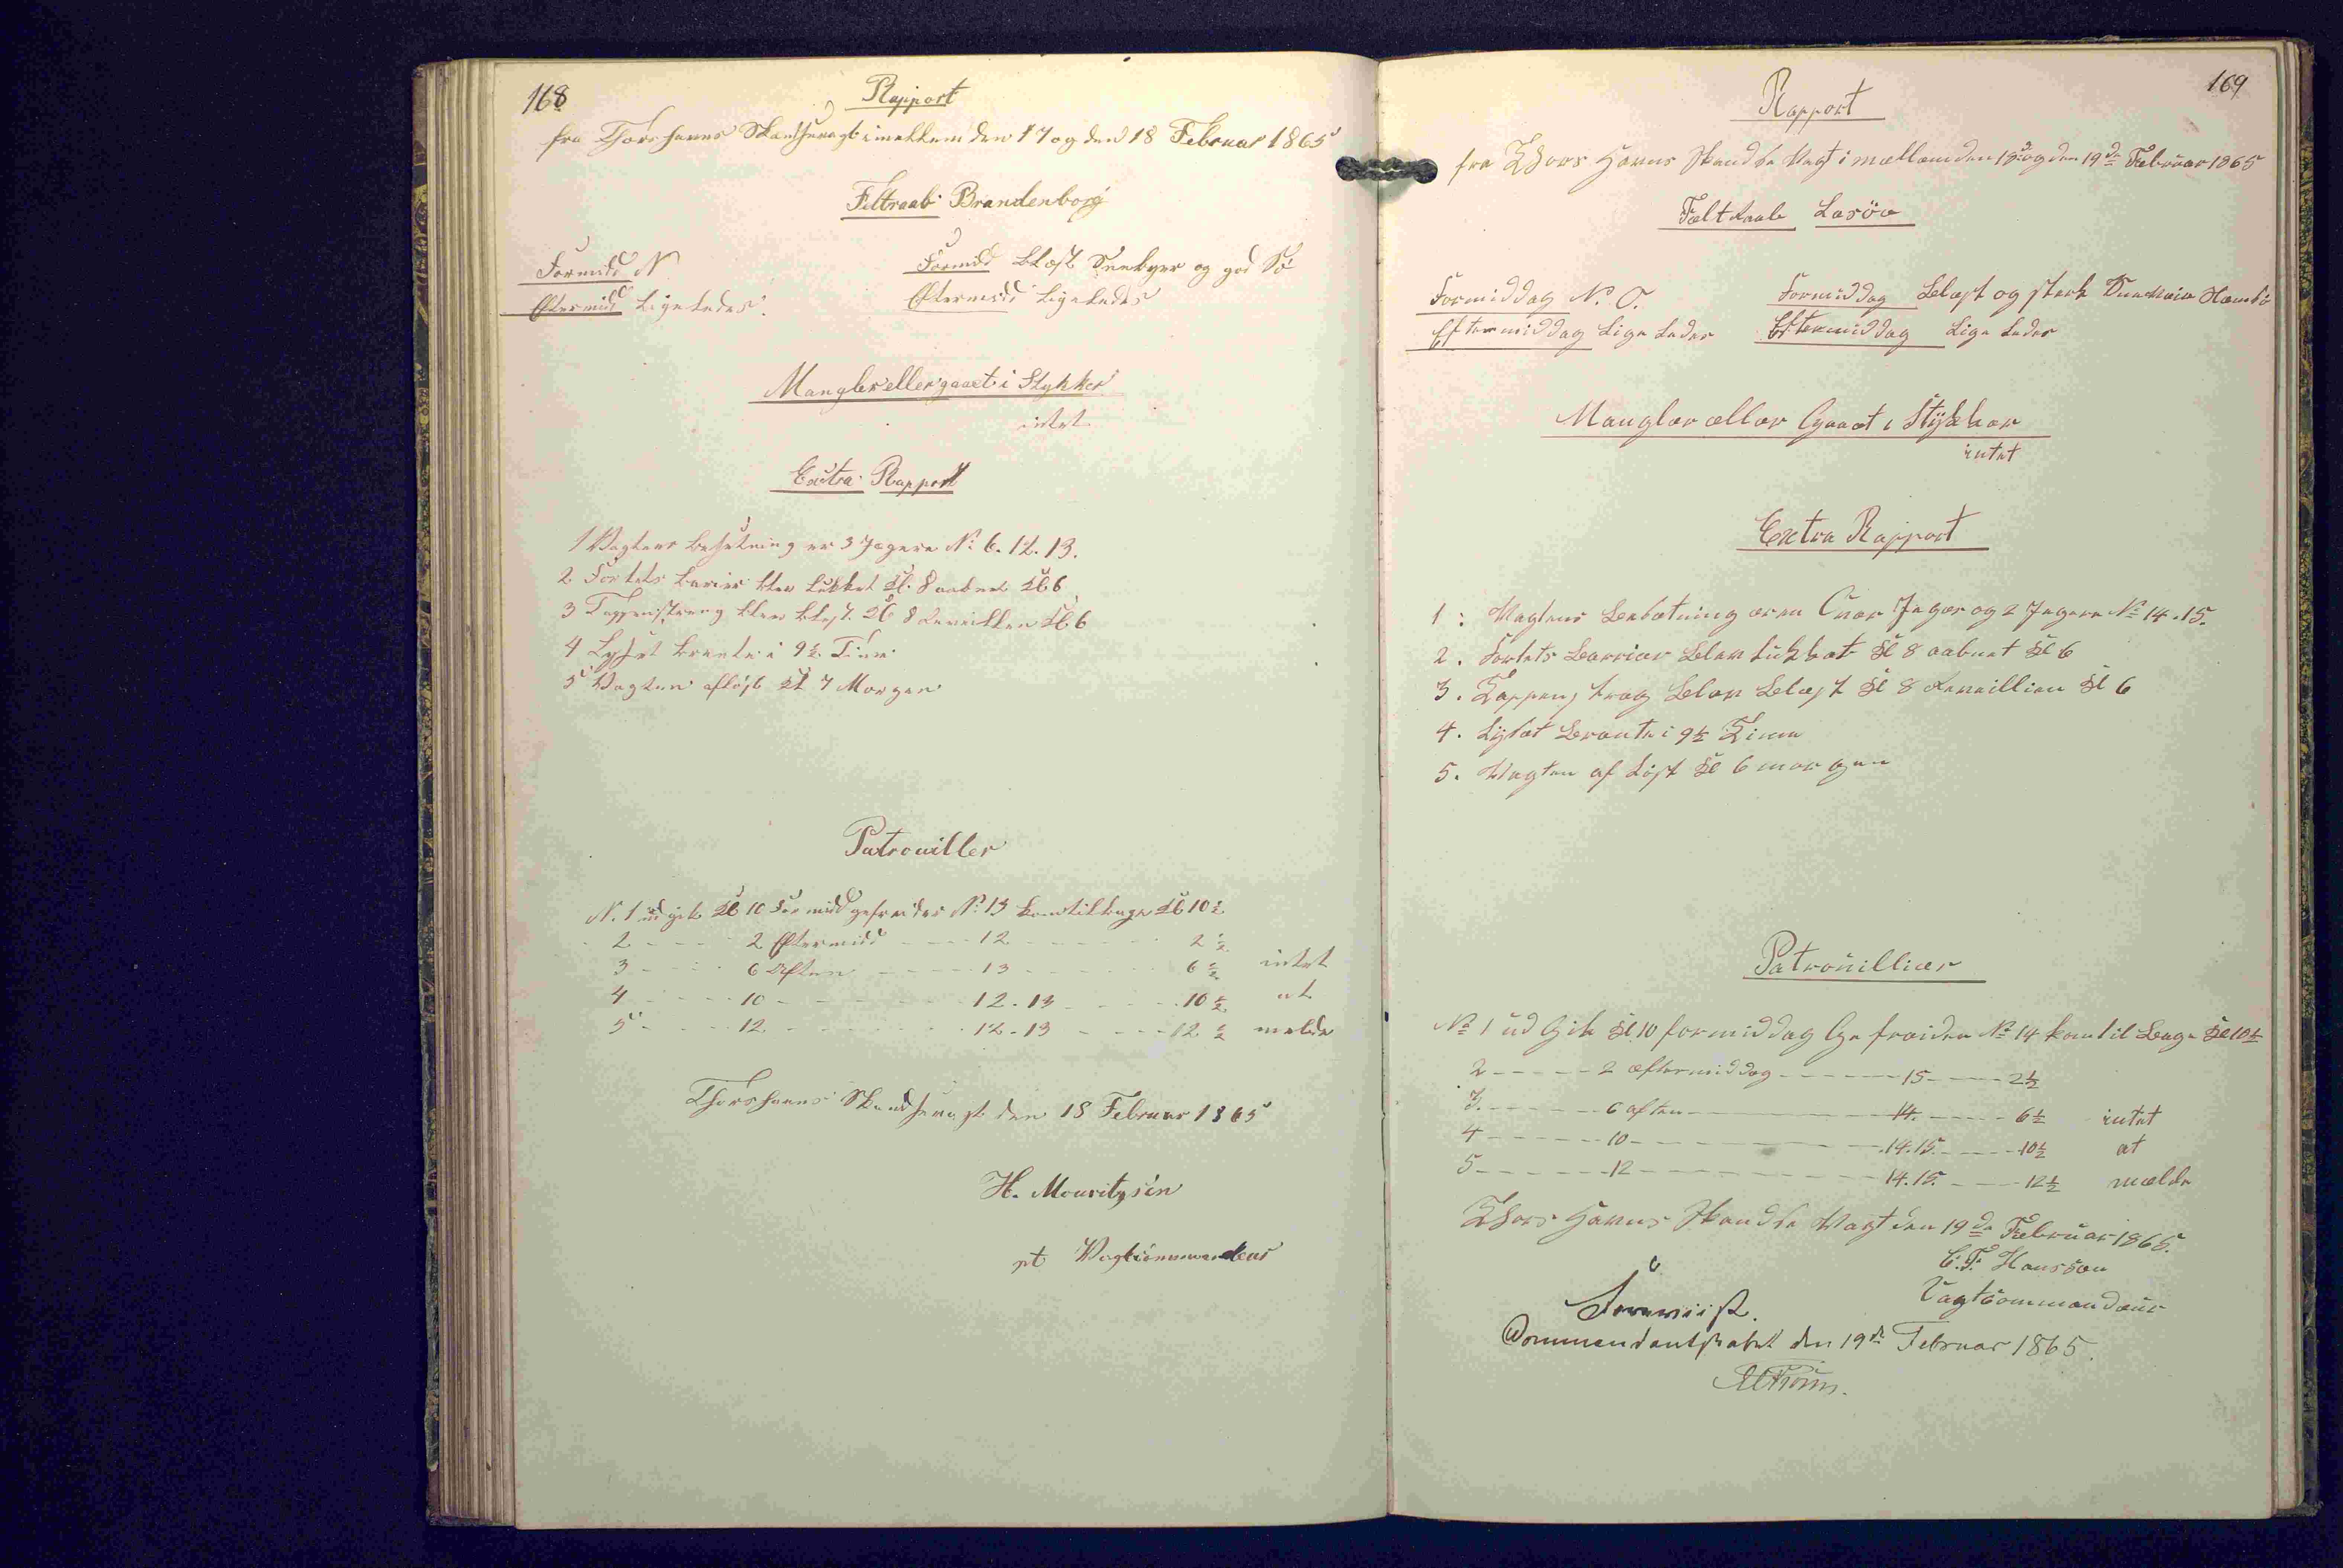 168
Rapport
fra Thorshavns Skandsevagt imellem den 17 og den 18 Februar 1865
Feltraab: Brandenborg
Formidd N
Formidd blæst Snebyer og god Sö
Eftermidd ligeledes.
Eftermidd ligeledes
Mangler eller gaaet i Stykker
intet
Extra Rapport
1 Vagtens besætning er 3 Jægere No 6. 12. 13.
2 Fortets barier blev lukket Kl. 8 aabnet Kl 6
3 Tappenstreng blev blæst Kl 8 Reveillen Kl 6
4 Lyset brænte i 9½ Time
5 Vagten aflöst Kl 7 Morgen
Patrouiller
N. 1 udgik Kl 10 Formidd gefreider No 13 kom tilbage Kl 10½
2 - - - - 2 Eftermidd - - - 12 - - - - - 2½
3 - - - 6 Aften - - - - 13 - - - - 6½ intet
4 - - - - 10 - - - - - - 12. 13 - - - - 10½ at
5 - - - - 12 - - - - - - 12-13 - - - - 12½ melde
Thorshavns Skandsevagt den 18 Februar 1865
H. Mouritzsen
pt Vagtcommandeur
169
Rapport
fra Thors Havns Skandse Vagt i mællem den 18 og den 19de Februar 1865
Feltraab Læsöe
Formiddag N. O.
Formiddag blæst og stærk
Eftermiddag Lige Ledes
Eftermiddag Lige Ledes
Mangler æller Gaaet i Stykker
intet
Extra Rapport
1: Vagtens besætning ær en Over Jæger og 2 Jægere No 14. 15.
2. Fortets barriær blev lukket Kl 8 aabnet Kl 6
3. Tappenstrag blev blæst Kl 8 Reveillien Kl 6
4. Lyset brænte i 9½ Time
5. Vagten af Löst Kl 6 morgen
Patrouillier
No 1 ud Gik Kl 10 formiddag Gefreiden No 14 kom til bage Kl 10½
2 - - - - - 2 æftermiddag - - - - - - 15 - - - - 2½
3. - - - - - - 6 aften - - - - - - - - 14. - - - - - 6½ intet
4 - - - - - - 10 - - - - - - - - - - 14. 15. - - - - - 10½ at
5 - - - - - - 12 - - - - - - - - - - 14. 15. - - - - 12½ mælde
Thors Havns Skandse Vagt den 19de Februar 1865.
C. F. Hansen
Vagtcommandeur
Foreviist.
Commandantskabet den 19de Februar 1865.